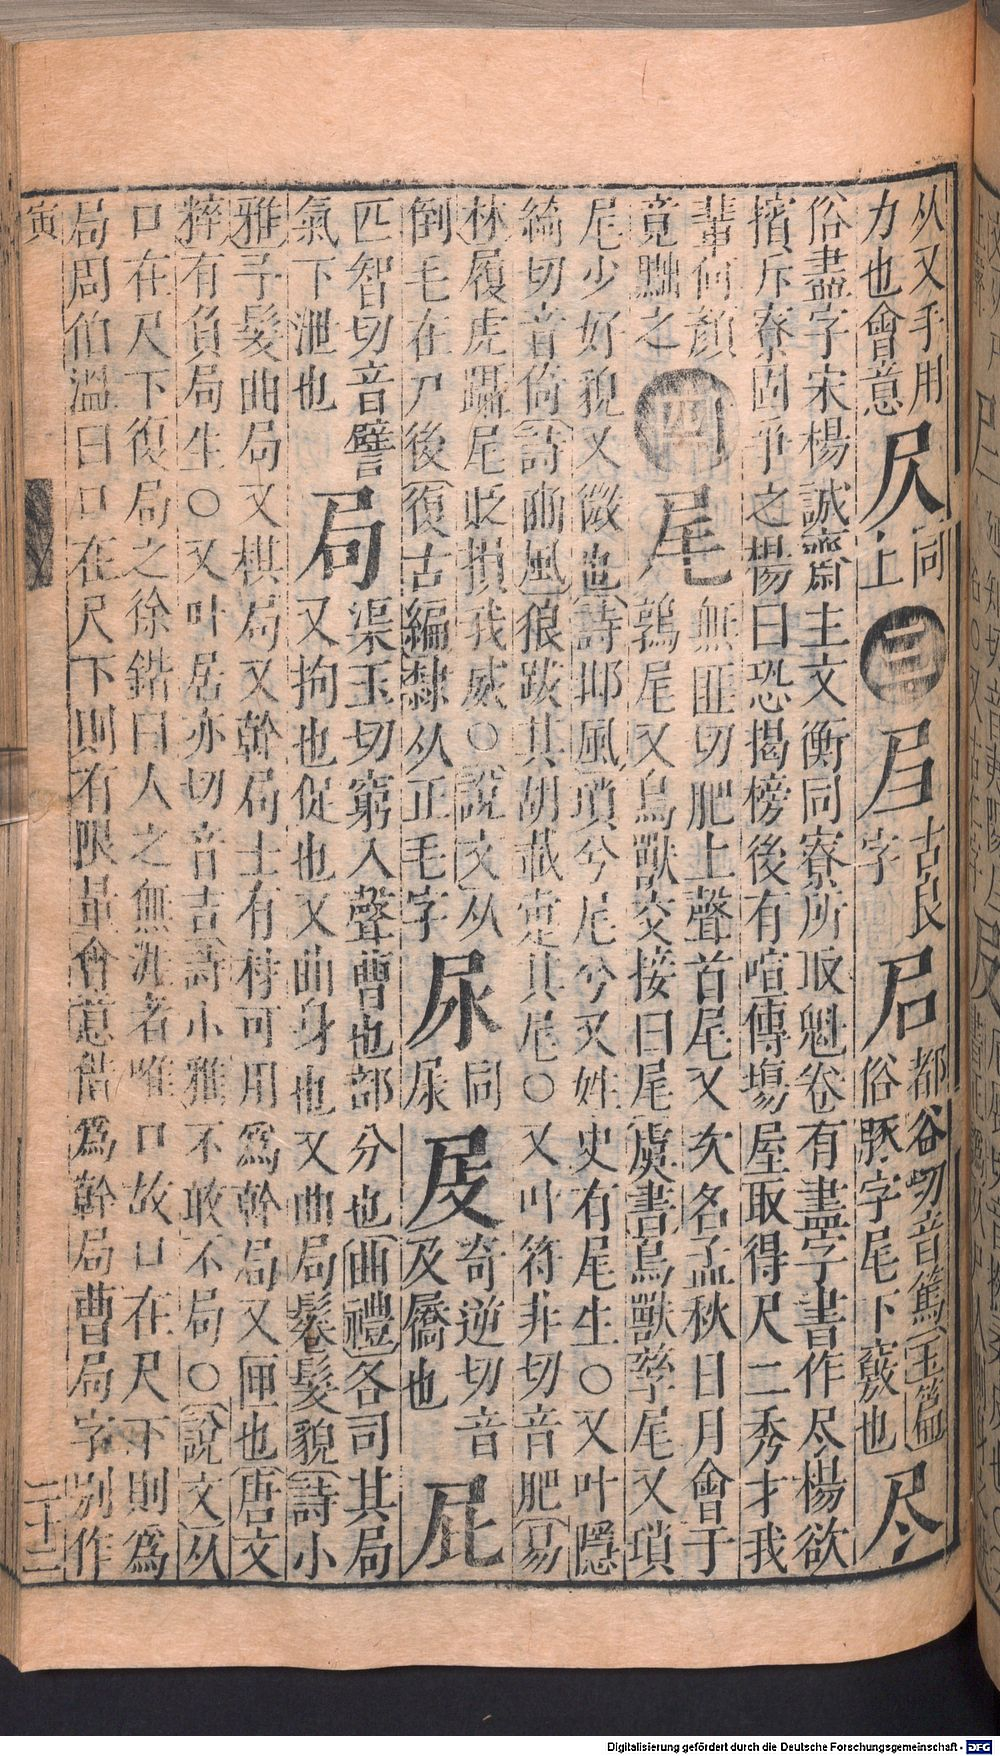 从又手用
力也會意
同
上
三
古良
字
都谷切音篤玉篇
俗豚字尾下竅也
尽
俗盡字宋楊誠齋主文衡同寮所取魁卷有盡字書作尽楊欲
擯斥寮固爭之楊曰恐揭榜後有喧傳塲屋取得尺二秀才我
輩何顏
竟黜之
四
尾
無匪切肥上聲首尾又次名孟秋日月會于
鶉尾又鳥獸交接曰尾虞書鳥獸孳尾又瑣
尾少好貌又微也詩邶風瑣兮尾兮又姓史有尾生○又叶隱
綺切音倚詩豳風狼跋其胡載疐其尾○又叶符非切音肥易
林履虎躡尾貶損我威○說文从
倒毛在尸後復古編隸从正毛字
尿
同
奇逆切音
及屩也
屁
匹智切音譬
氣下泄也
局
渠玉切窮入聲曹也部分也曲禮各司其局
又拘也促也又曲身也又曲局鬈髮貌詩小
雅予髮曲局又棋局又幹局士有材可用爲幹局又匣也唐文
粹有負局生○又叶居亦切音吉詩小雅不敢不局○說文从
口在尺下復局之徐鍇曰人之無涯者唯口故口在尺下則爲
局周伯溫曰口在尺下則有限量會意借爲幹局曹局字別作
寅
二十二
Digitalisierung gefördert durch die Deutsche Forschungsgemeinschaft - DFG